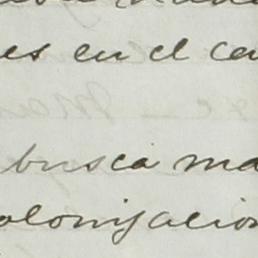 es en el ce
busca ma
olonización